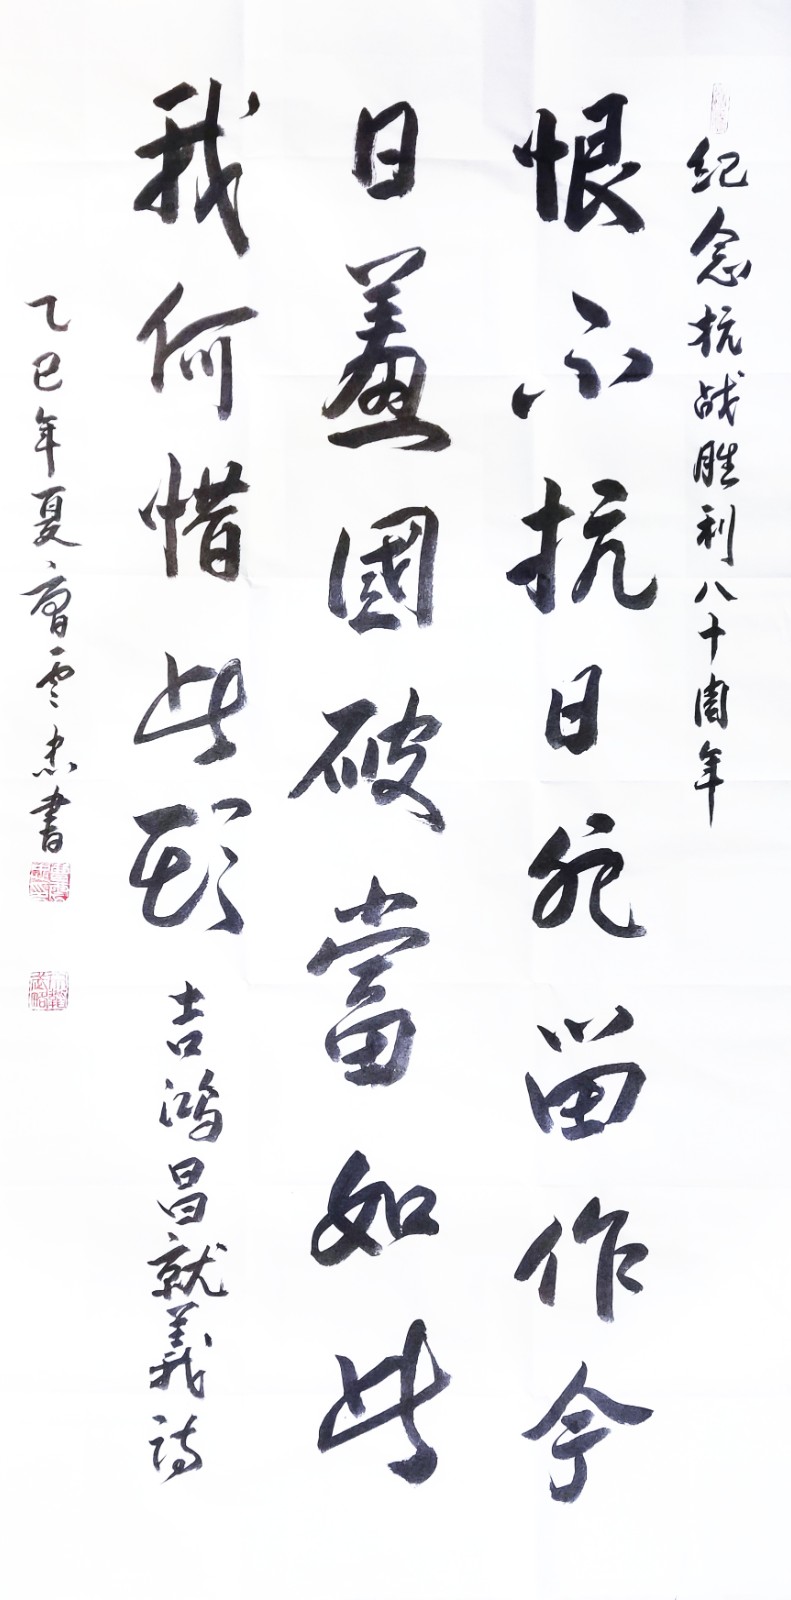 纪念抗战胜利八十周年
恨不抗日死留作今
日羞國破當如此
我何惜此頭
吉鸿昌就義诗
乙巳年夏雲書